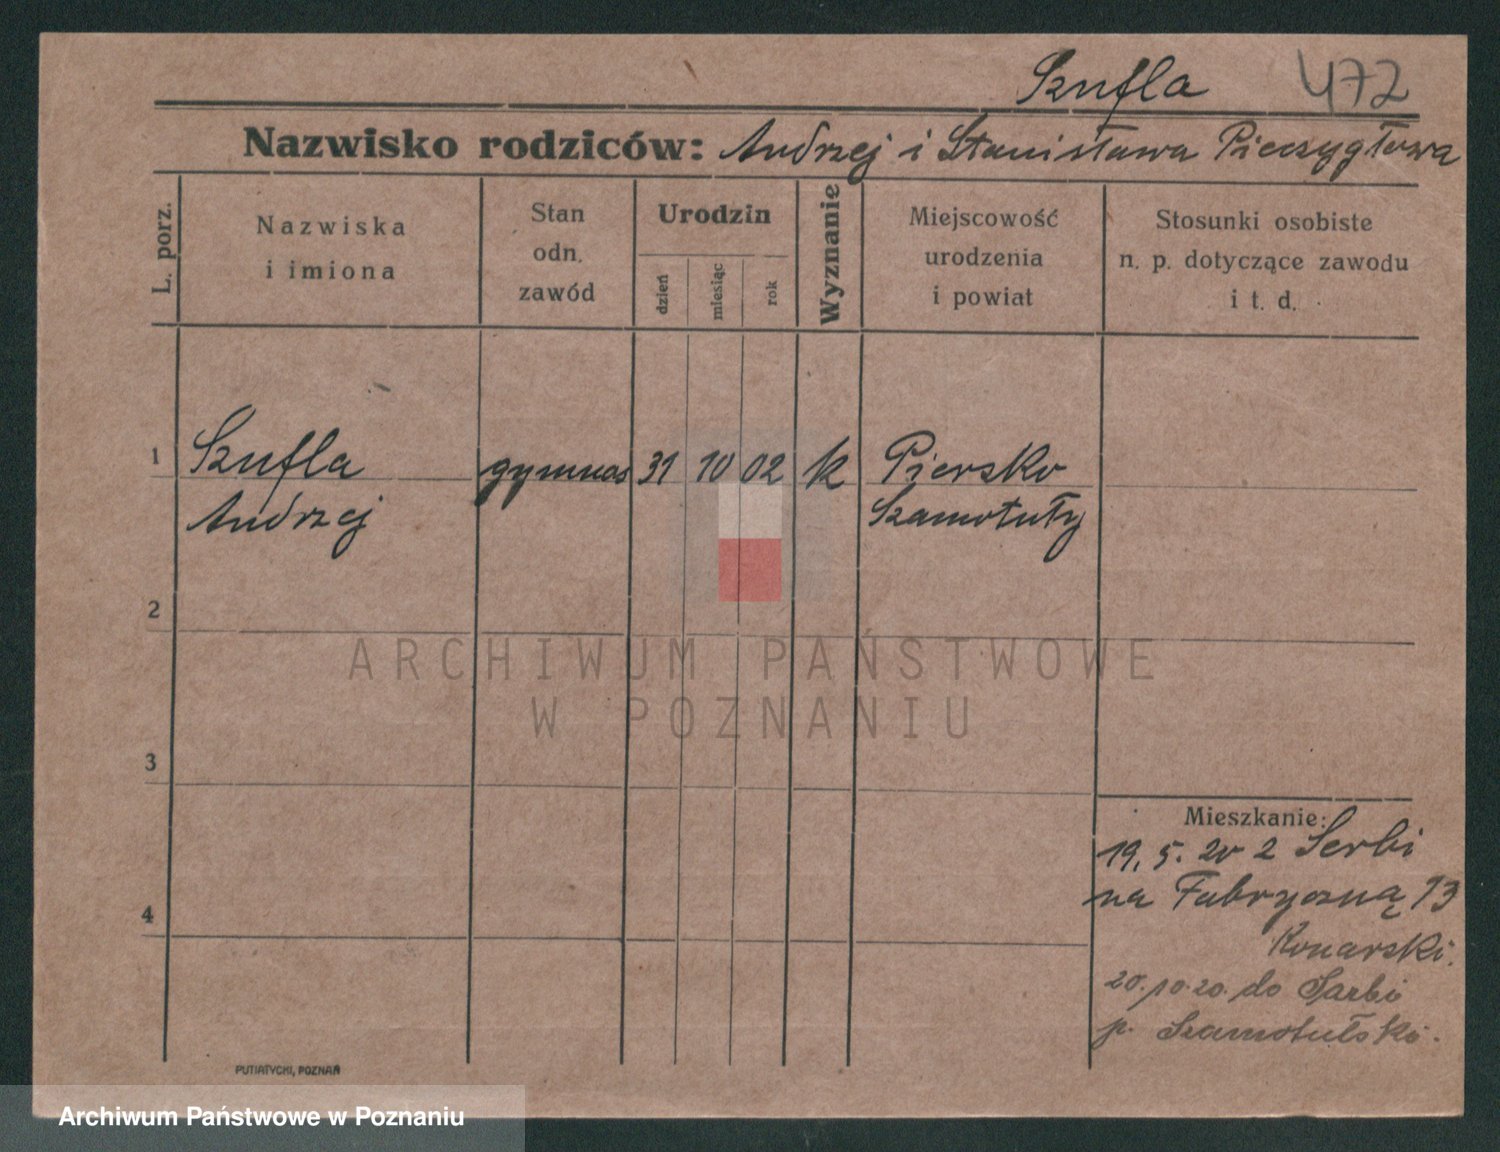 Szufla 472
Nazwisko rodziców: Andrzej i Stanisława Pieczygłowa
L. porz.
Nazwiska
i imiona
Stan
odn.
zawód
Urodzin
dzień
miesiąc
rok
Wyznanie
Miejscowość
urodzenia
i powiat
Stosunki osobiste
n. p. dotyczące zawodu
i t. d.
1 Szufla gymnas 31 10 02 k Piersko
Andrzej Szamotuły
2
ARCHIWUM PAŃSTWOWE
W POZNANIU
3
Mieszkanie:
19. 5. 20 z Serbi
na Fabryczną 13
4
Konarski.
20.10.20. do Sarbi
p. Szamotulski.
PUTIATYCKI, POZNAŃ
Archiwum Państwowe w Poznaniu